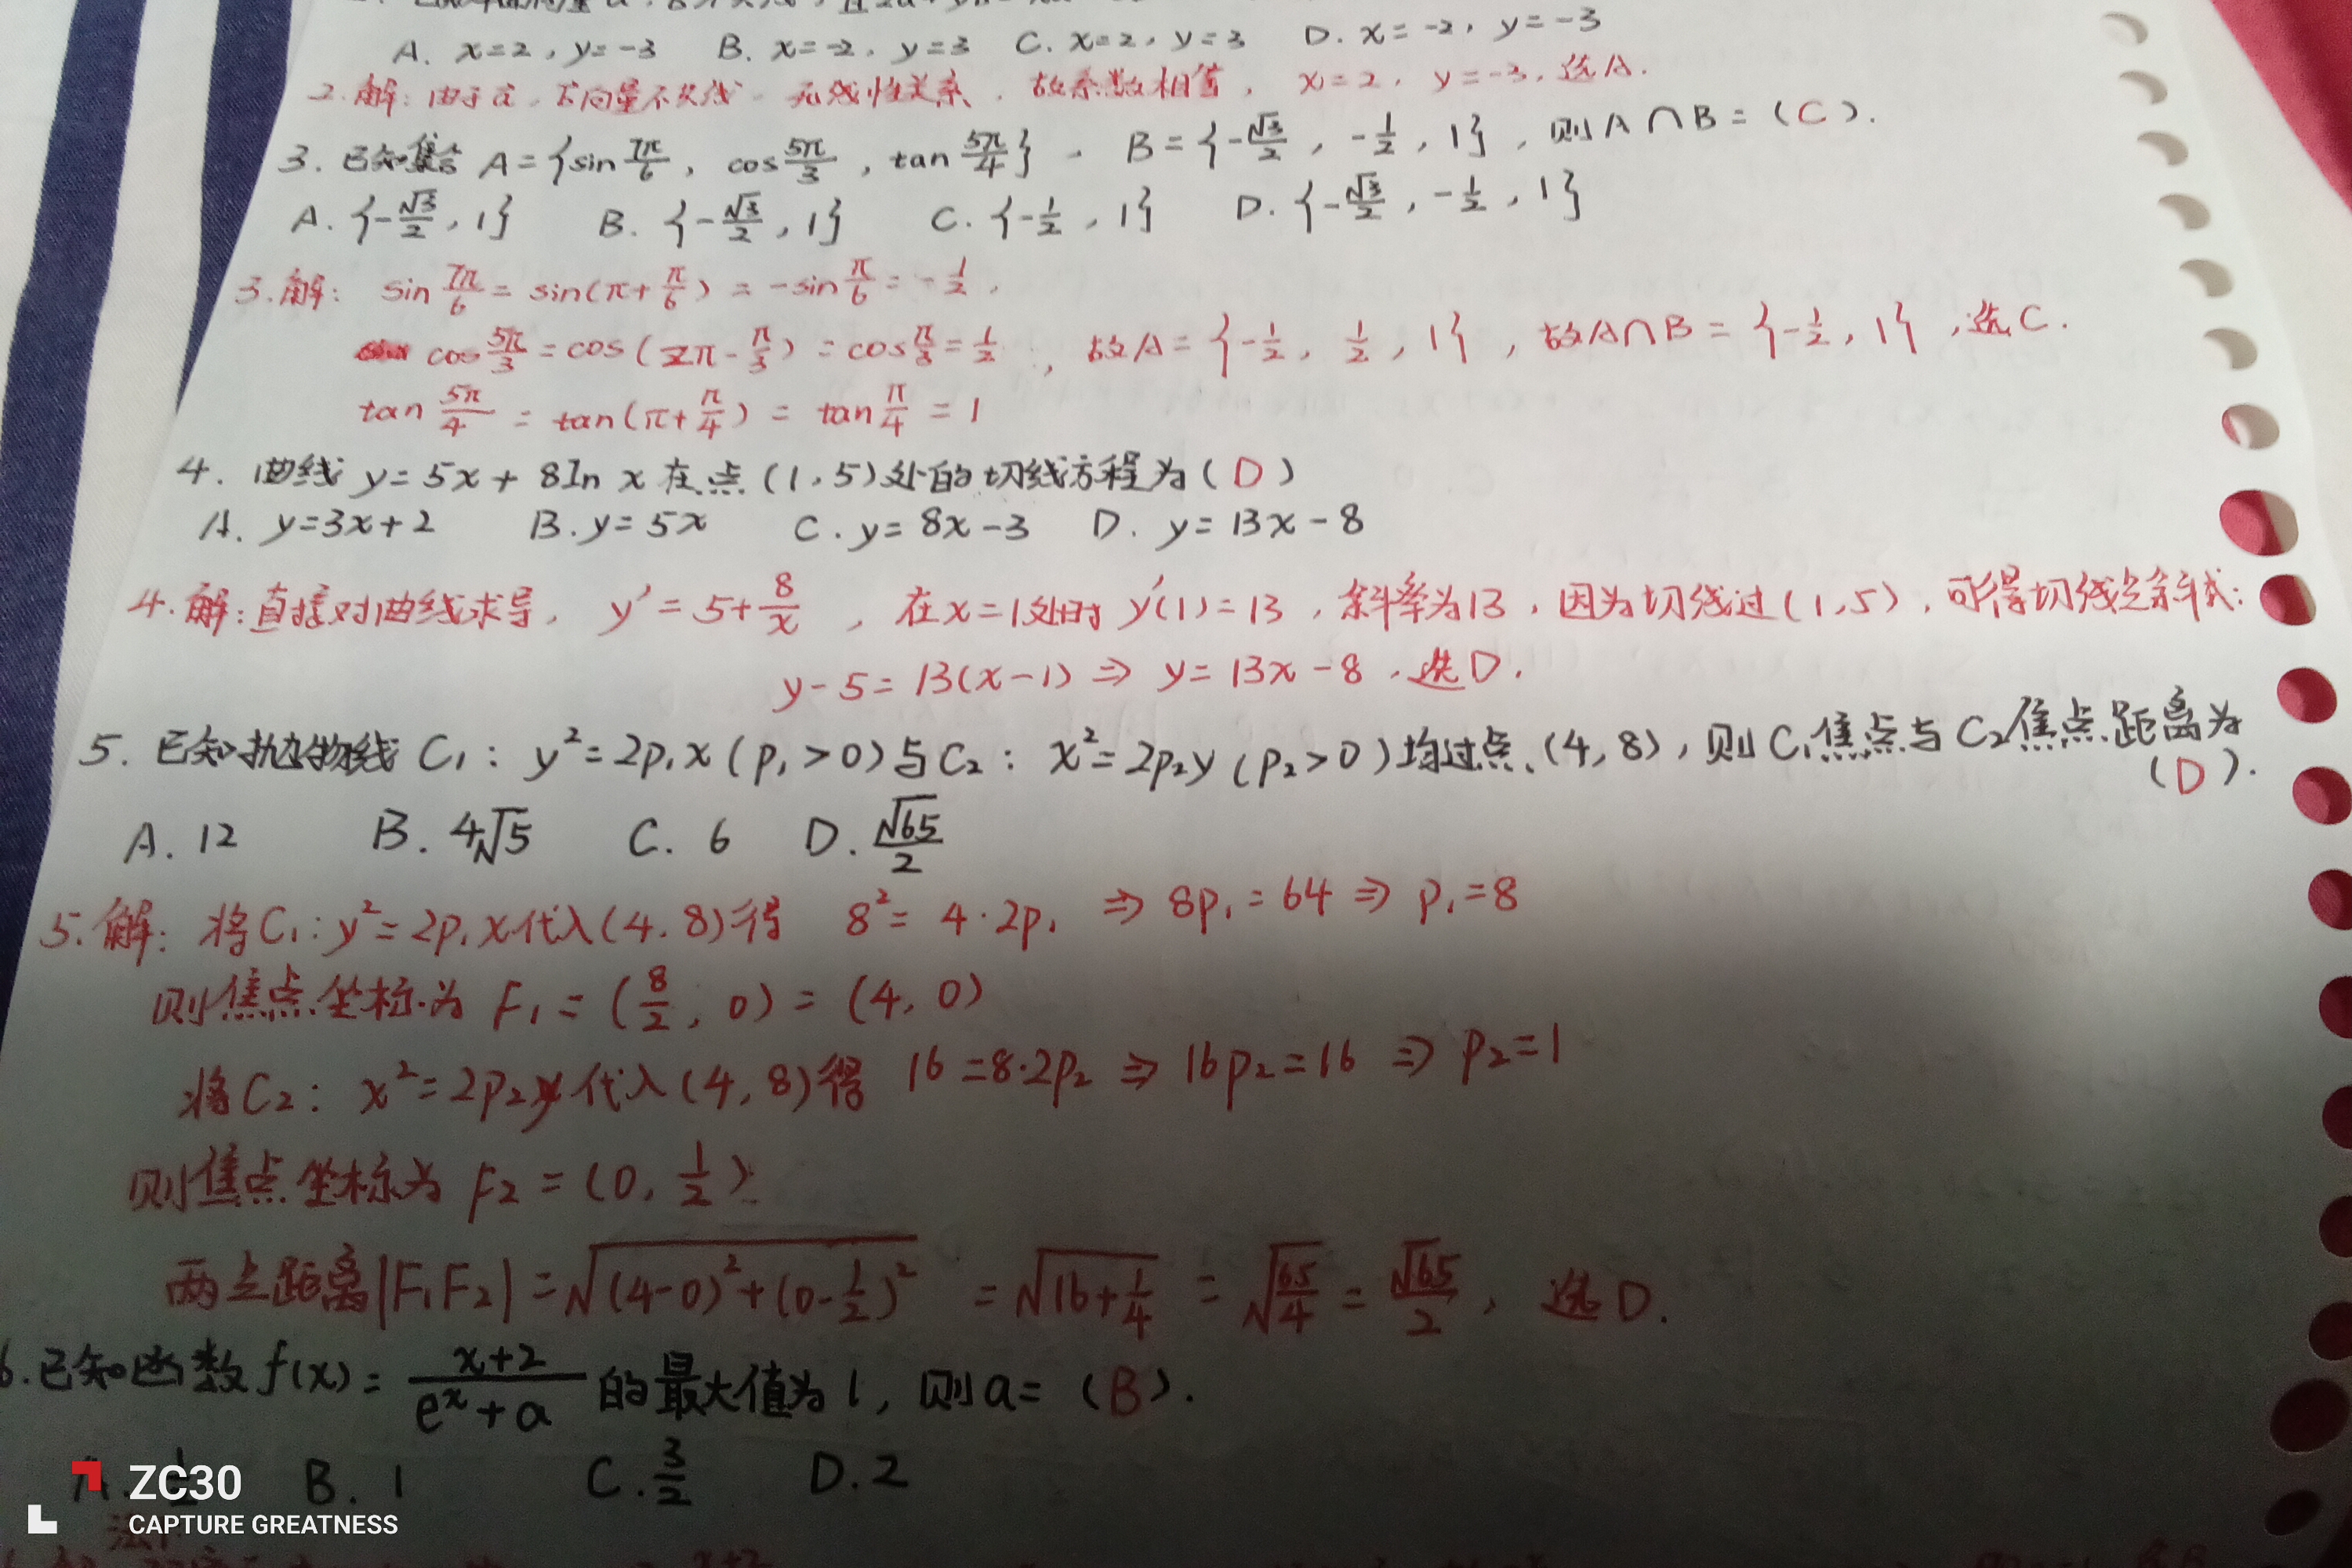 A. x=2, y=-3 B. x=-2, y=3 C. x=2, y=3 D. x=-2, y=-3
2.解:由于a, b向量不共线, 无线性关系, 故系数相等, x=2, y=-3, 选A.
3. 已知集合 A={sin 7π/6, cos 5π/3, tan 5π/4}, B={-√3/2, -1/2, 1}, 则A∩B=(C).
A. {-√3/2, 1} B. {-√3/2, 1} C. {-1/2, 1} D. {-√3/2, -1/2, 1}
3.解: sin 7π/6 = sin(π+π/6) = -sin π/6 = -1/2,
cos 5π/3 = cos(2π-π/3) = cos π/3 = 1/2, 故A={-1/2, 1/2, 1}, 故A∩B={-1/2, 1}, 选C.
tan 5π/4 = tan(π+π/4) = tan π/4 = 1
4. 曲线 y=5x+8ln x 在点(1,5)处的切线方程为(D)
A. y=3x+2 B. y=5x C. y=8x-3 D. y=13x-8
4.解:直接对曲线求导, y′=5+8/x, 在x=1处时y′(1)=13, 斜率为13, 因为切线过(1,5), 可得切线点斜式:
y-5=13(x-1)⇒ y=13x-8, 选D.
5. 已知抛物线 C₁: y²=2p₁x(p₁>0)与C₂: x²=2p₂y(p₂>0)均过点(4,8), 则C₁焦点与C₂焦点距离为
(D).
A. 12 B. 4√5 C. 6 D. √65/2
5.解: 将C₁:y²=2p₁x代入(4,8)得 8²=4·2p₁ ⇒ 8p₁=64 ⇒ p₁=8
则焦点坐标为 F₁=(8/2, 0)=(4, 0)
将C₂: x²=2p₂y代入(4,8)得 16=8·2p₂ ⇒ 16p₂=16 ⇒ p₂=1
则焦点坐标为 F₂=(0, 1/2).
两点距离|F₁F₂|=√((4-0)²+(0-1/2)²) = √(16+1/4) = √(65/4) = √65/2, 选D.
6.已知函数f(x)= (x+2)/(eˣ+a) 的最大值为1, 则a=(B).
A. B. 1 C. 3/2 D. 2
ZC30
CAPTURE GREATNESS